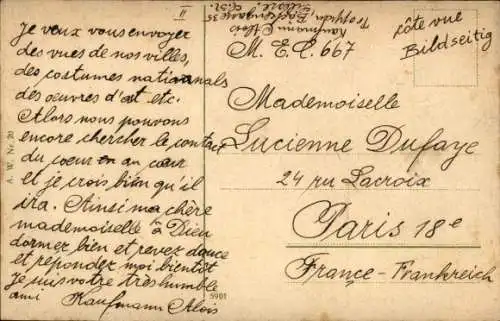 II
Je veux vous envoyer
des vues de nos villes,
des costumes nationals
des œuvres d'art etc.
Alors nous pouvons
encore chercher le contact
du cœur en au cœur
et je crois bien qu'il
ira. Ainsi ma chère
mademoiselle à Dieu
dormez bien et revez douce
et repondez moi bientôt
Je suis votre très humble
ami Kaufmann Alois
A. W. Nr. 20
Kaufmann Alois
Troppau
M. E. C. 667
côte vue
Bildseitig
Mademoiselle
Lucienne Dufaye
24 ru Lacroix
Paris 18e
France-Frankreich
5901